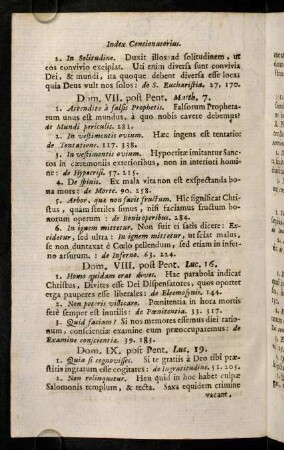 Index Concionatorius.
2. In Solitudine. Duxit illos ad solitudinem, ut
eos convivio exciplat. Uti enim diversa sunt convivia
Dei, & mundi, ita quoque debent diversa esse loca:
quia Deus vult nos solos: de S. Eucharistia. 27. 170.
Dom. VII. post Pent. Matth. 7.
1. Attendite à falsis Prophetis. Falsorum Propheta-
rum unus est mundus, à quo nobis cavere debemus:
de Mundi periculis. 281.
2. In vestimentis ovium. Hæc ingens est tentatio:
de Tentatione. 117. 338.
3. In vestimentis ovium. Hypocritæ imitantur Sanc-
tos in cæremoniis exterioribus, non in interiori homi-
ne: de Hypocrisi. 57. 215.
4. De spinis. Ex mala vita non est exspectanda bo-
na mors: de Morte. 90. 258.
5. Arbor, quæ non facit fructum. Hic significat Chri-
stus, quàm steriles simus, nisi faciamus fructum bo-
norum operum: de Bonis operibus. 284.
6. In ignem mittetur. Non fuit ei satis dicere: Ex-
cidetur, sed ultra: In ignem mittetur, ut scias malos,
si non duntaxat è Cœlo pellendum, sed etiam in infer-
no arsurum: de Inferno. 63. 224.
Dom. VIII. post Pent. Luc. 16.
1. Homo quidam erat dives. Hac parabola indicat
Christus, Divites esse Dei Dispensatores, quos oportet
erga pauperes esse liberales: de Eleemosynis. 144.
2. Non poteris villicare. Pœnitentia in hora mortis
ferè semper est inutilis: de Pœnitentia. 33. 317.
3. Quid faciam? Si nos memores essemus diei ratio-
num, conscientiæ examine eum præoccuparemus: de
Examine conscientiæ. 39. 183.
Dom. IX. post Pent. Luc. 19.
1. Quia si cognovisses. Si te gratiis à Deo tibi præ-
stitis ingratum esse cogitates: de Ingratitudine. 51. 205.
2. Non relinquetur. Heu quid in hoc habet culpæ
Salomonis templum, & tecta. Saxa equidem crimine
vacant.